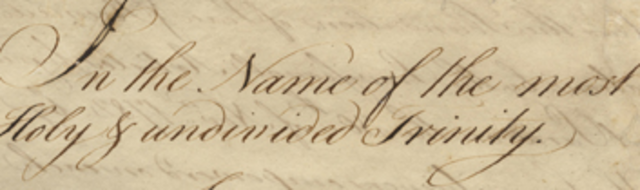 In the Name of the most
Holy & undivided Trinity.